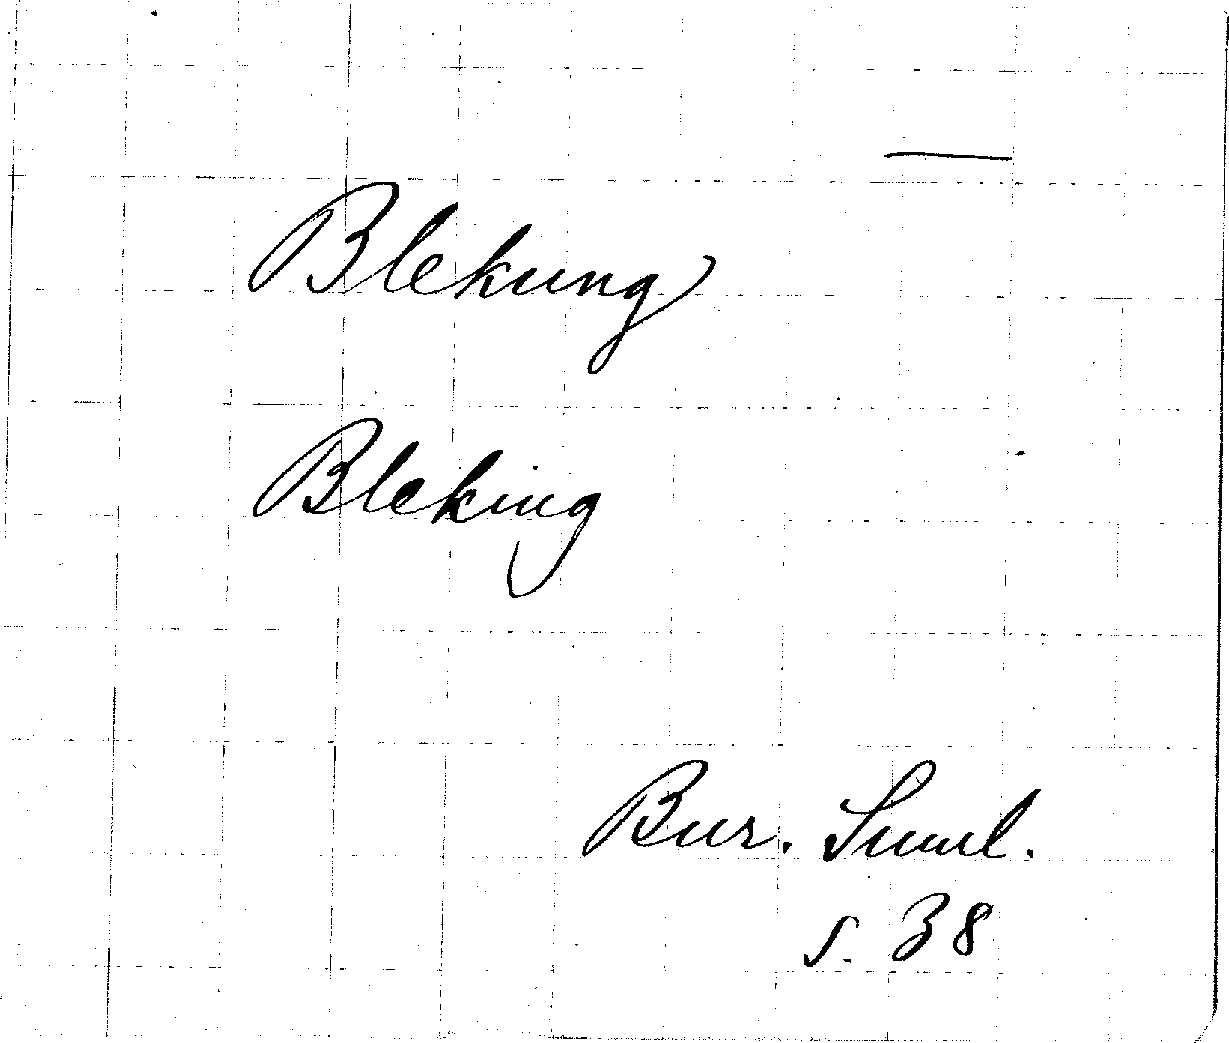 Blekung
Bleking
Bur. Suml.
s. 38